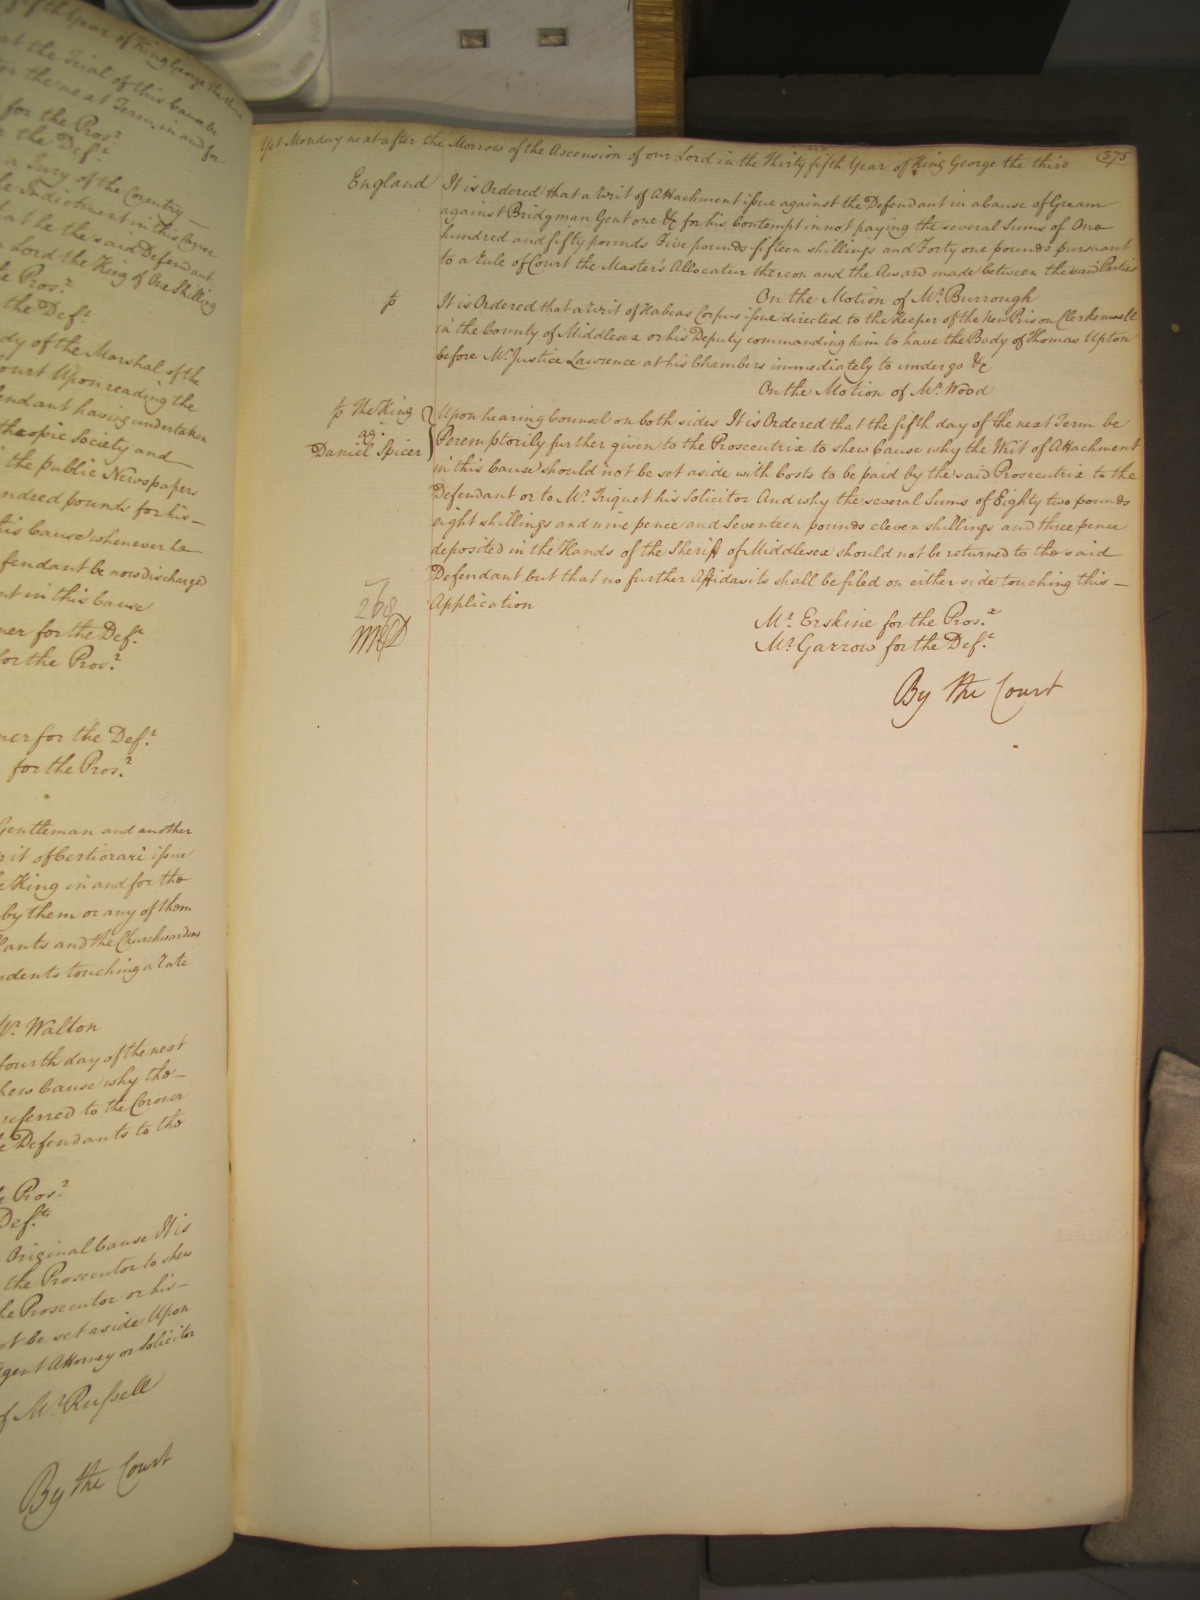 fifth Year of King George the third
at the Trial of this Cause be
the next Term in and for
for the Pros.r
the Def.t
a Jury of the Country
the Indictment in this Cause
that he the said Defendant
Lord the King of One Shilling
Pros.r
the Def.t
dy of the Marshal of the
ourt Upon reading the
endant having undertaken
thropic Society and
the public Newspapers
undred pounds for his
this Cause whenever he
fendant be now discharged
nt in this Cause
ner for the Def.t
for the Pros.r
ner for the Def.t
for the Pros.r
Gentleman and another
rit of Certiorari issue
e King in and for the
by them or any of them
itants and the Churchwardens
ndents touching a Rate
Mr. Walton
fourth day of the next
hew Cause why the
referred to the Coroner
e Defendants to the
e Pros.r
Def.ts
Original Cause It is
the Prosecutor to shew
he Prosecutor or his
ot be set aside Upon
Agent Attorney or Solicitor
of Mr. Russell
By the Court
Yet Monday next after the Morrow of the Ascension of our Lord in the Thirty fifth Year of King George the third
(375
England It is Ordered that a Writ of Attachment issue against the Defendant in a Cause of Gream
against Bridgman Gent one &c for his Contempt in not paying the several Sums of One
hundred and fifty pounds Five pounds fifteen shillings and Forty one pounds pursuant
to a Rule of Court the Master's Allocatur thereon and the Award made between the said Parties
On the Motion of Mr. Burrough
p It is Ordered that a Writ of Habeas Corpus issue directed to the Keeper of the New Prison Clerkenwell
in the County of Middlesex or his Deputy commanding him to have the Body of Thomas Upton
before Mr. Justice Lawrence at his Chambers immediately to undergo &c
On the Motion of Mr. Wood
p The King
agt.
Daniel Spicer
Upon hearing Counsel on both sides It is Ordered that the fifth day of the next Term be
Peremptorily further given to the Prosecutrix to shew Cause why the Writ of Attachment
in this Cause should not be set aside with Costs to be paid by the said Prosecutrix to the
Defendant or to Mr. Triquet his Solicitor And why the several Sums of Eighty two pounds
eight shillings and nine pence and Seventeen pounds eleven shillings and three pence
deposited in the Hands of the Sheriff of Middlesex should not be returned to the said
Defendant but that no further Affidavits shall be filed on either side touching this
Application
268
Mr. Erskine for the Pros.x
Mr. Garrow for the Def.t
By the Court